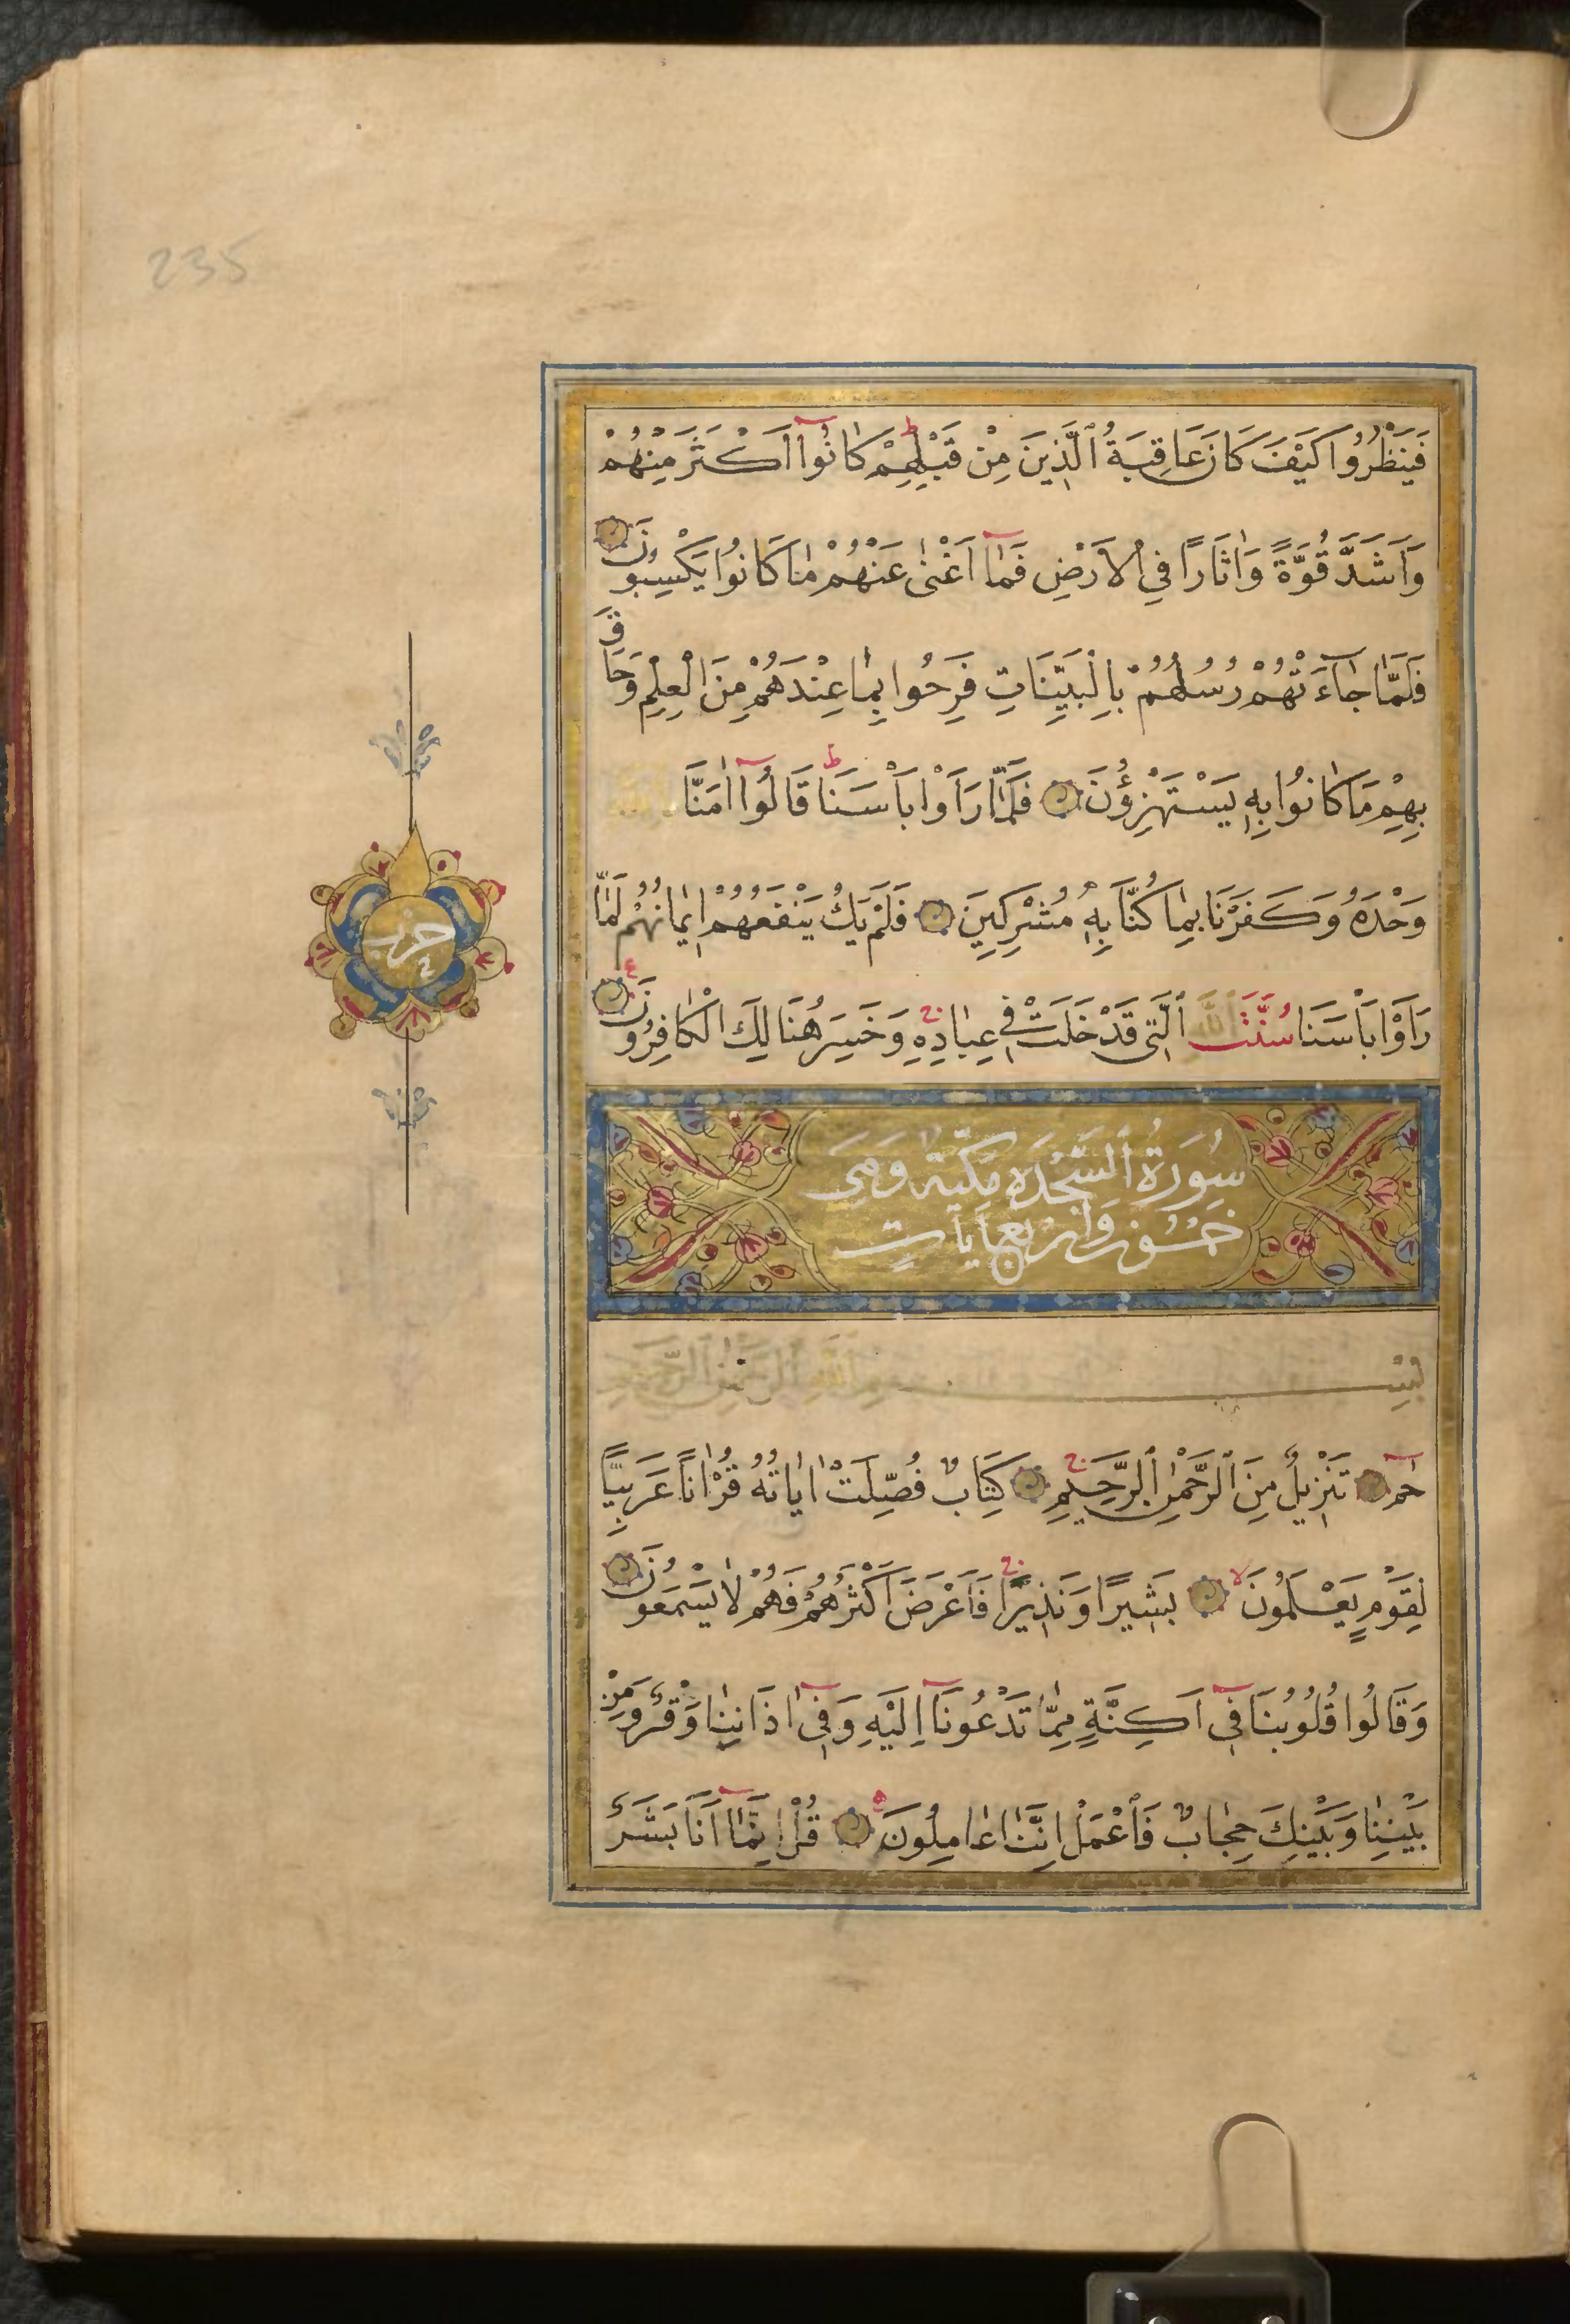 235
فَيَنْظُرُوا كَيْفَ كَانَ عَاقِبَةُ الَّذِينَ مِنْ قَبْلِهِمْ كَانُوا اَكْثَرَ مِنْهُمْ
وَاَشَدَّ قُوَّةً وَاٰثَارًا فِي الْاَرْضِ فَمَا اَغْنٰى عَنْهُمْ مَا كَانُوا يَكْسِبُونَ
فَلَمَّا جَاءَتْهُمْ رُسُلُهُمْ بِالْبَيِّنَاتِ فَرِحُوا بِمَا عِنْدَهُمْ مِنَ الْعِلْمِ وَحَاقَ
بِهِمْ مَا كَانُوا بِهِ يَسْتَهْزِؤُنَ فَلَمَّا رَاَوْا بَاْسَنَا قَالُوا اٰمَنَّا
وَحْدَهُ وَكَفَرْنَا بِمَا كُنَّا بِهِ مُشْرِكِينَ فَلَمْ يَكُ يَنْفَعُهُمْ اِيمَانُهُمْ لَمَّا
رَاَوْا بَاْسَنَا سُنَّتَ اللّٰهِ الَّتِي قَدْ خَلَتْ فِي عِبَادِهِ وَخَسِرَ هُنَالِكَ الْكَافِرُونَ
حزب
سُورَةُ السَّجْدَهِ مَكِّيَّة وَهِىَ
خَمْسُونَ وَاَرْبَع اٰيَاتٍ
بِسْمِ اللّٰهِ الرَّحْمٰنِ الرَّحِيمِ
حم تَنْزِيلٌ مِنَ الرَّحْمٰنِ الرَّحِيمِ كِتَابٌ فُصِّلَتْ اٰيَاتُهُ قُرْاٰنًا عَرَبِيًّا
لِقَوْمٍ يَعْلَمُونَ بَشِيرًا وَنَذِيرًا فَاَعْرَضَ اَكْثَرُهُمْ فَهُمْ لَا يَسْمَعُونَ
وَقَالُوا قُلُوبُنَا فِي اَكِنَّةٍ مِمَّا تَدْعُونَا اِلَيْهِ وَفِي اٰذَانِنَا وَقْرٌ وَمِنْ
بَيْنِنَا وَبَيْنِكَ حِجَابٌ فَاعْمَلْ اِنَّنَا عَامِلُونَ قُلْ اِنَّمَا اَنَا بَشَرٌ